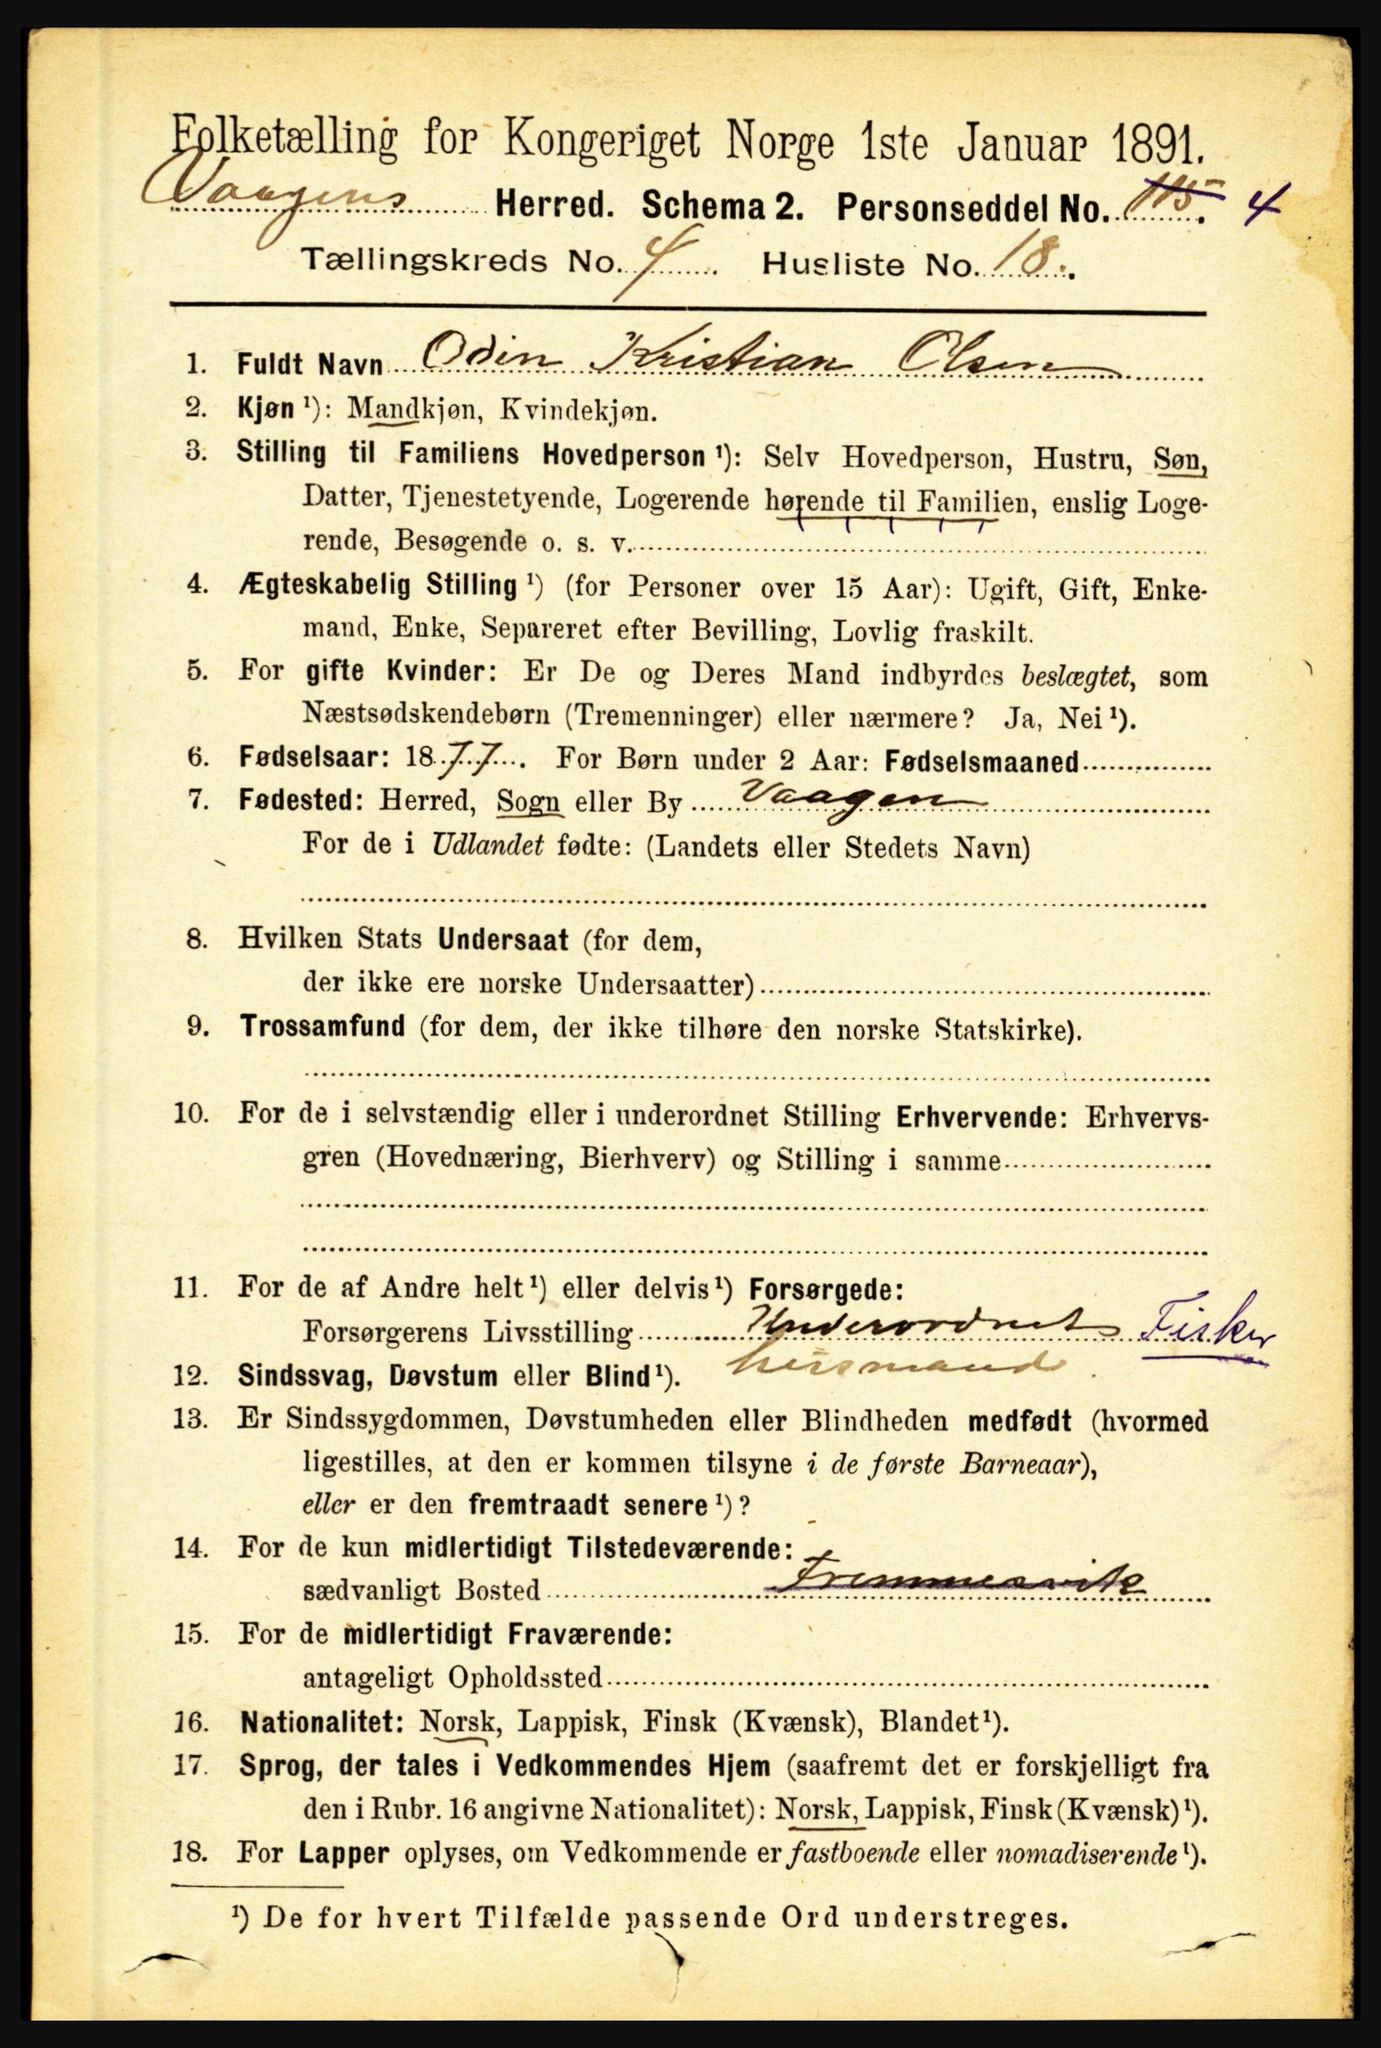 Folketælling for Kongeriget Norge 1ste Januar 1891.
Vaagens Herred. Schema 2. Personseddel No. 115. 4
Tællingskreds No. 4 Husliste No. 18.
1. Fuldt Navn Odin Kristian Olsen
2. Kjøn ¹): Mandkjøn, Kvindekjøn.
3. Stilling til Familiens Hovedperson ¹): Selv Hovedperson, Hustru, Søn,
Datter, Tjenestetyende, Logerende hørende til Familien, enslig Loge-
rende, Besøgende o. s. v.
4. Ægteskabelig Stilling ¹) (for Personer over 15 Aar): Ugift, Gift, Enke-
mand, Enke, Separeret efter Bevilling, Lovlig fraskilt.
5. For gifte Kvinder: Er De og Deres Mand indbyrdes beslægtet, som
Næstsødskendebørn (Tremenninger) eller nærmere? Ja, Nei ¹).
6. Fødselsaar: 1877. For Børn under 2 Aar: Fødselsmaaned
7. Fødested: Herred, Sogn eller By Vaagen
For de i Udlandet fødte: (Landets eller Stedets Navn)
8. Hvilken Stats Undersaat (for dem,
der ikke ere norske Undersaatter)
9. Trossamfund (for dem, der ikke tilhøre den norske Statskirke).
10. For de i selvstændig eller i underordnet Stilling Erhvervende: Erhvervs-
gren (Hovednæring, Bierhverv) og Stilling i samme
11. For de af Andre helt ¹) eller delvis ¹) Forsørgede:
Forsørgerens Livsstilling Underordnet Fisker
12. Sindssvag, Døvstum eller Blind ¹). husmand
13. Er Sindssygdommen, Døvstumheden eller Blindheden medfødt (hvormed
ligestilles, at den er kommen tilsyne i de første Barneaar),
eller er den fremtraadt senere ¹)?
14. For de kun midlertidigt Tilstedeværende:
sædvanligt Bosted
15. For de midlertidigt Fraværende:
antageligt Opholdssted
16. Nationalitet: Norsk, Lappisk, Finsk (Kvænsk), Blandet ¹).
17. Sprog, der tales i Vedkommendes Hjem (saafremt det er forskjelligt fra
den i Rubr. 16 angivne Nationalitet): Norsk, Lappisk, Finsk (Kvænsk) ¹).
18. For Lapper oplyses, om Vedkommende er fastboende eller nomadiserende ¹).
¹) De for hvert Tilfælde passende Ord understreges.